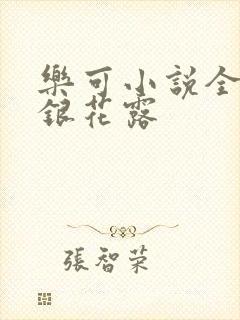 樂可小說全
銀花露
張智荣